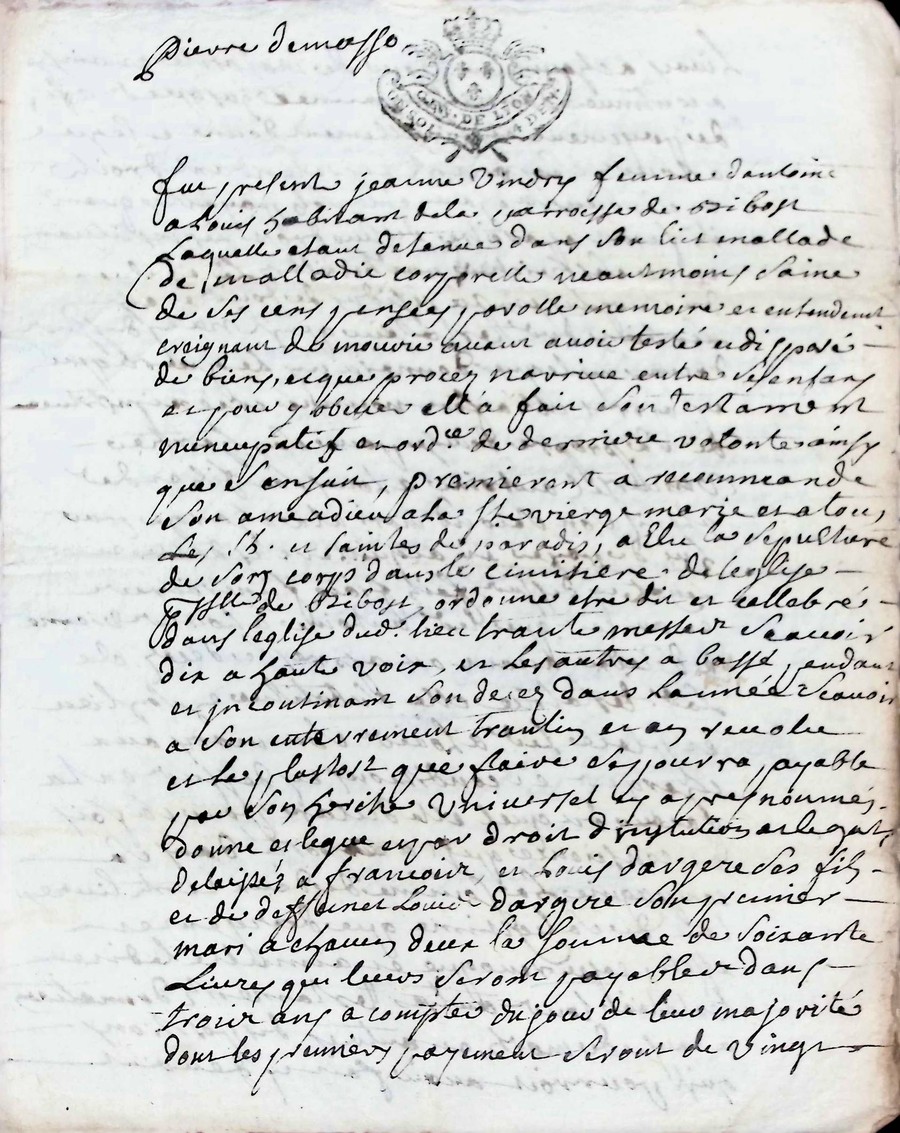 pierre demosso
GEN. DE LYON
UN SOL 4 DEN.
fut presente jeanne Vindry femme dantoine
alouis habitant dela parroisse de Bibost
Laquelle etant detenue dans son lict mallade
de malladie corporelle neautmoins saine
de ses cens pensees parolle memoire et entendemt
creignant de mourir avant avoir testé et disposé
de biens, et que procez narrive entre ses enfans
et pour y obvier ell'a fait son testament
nuncupatif et ord.ce de derniere volonte ainsy
que sensuit, premieremt a recommande
son ame a dieu a la Ste vierge marie et a tous
Les Sts. et saintes du paradis, a Elu la sepulture
de son corps dans le cimitiere de leglise
de Bibost, ordonne etre dit et cellebré
dans leglise dud. lieu trante messes scavoir
dix a haute voix, et les autres a basse, pendant
et jncontinant son decez dans lannée scavoir
a son enterrement trantin et an revolu
et le plustost que faire se pourra payable
par son heritie Universel cy apres nommés
donne et legue et par droit d'institution et legat
delaissés a francois, et Louis dargere ses fils
et de deffunct Louis dargere son premier
mari a chacun deux la somme de soixante
Livres qui leurs seront payables dans
trois ans a compter du jour de leur majorité
dont les premiers payement seront de vingt